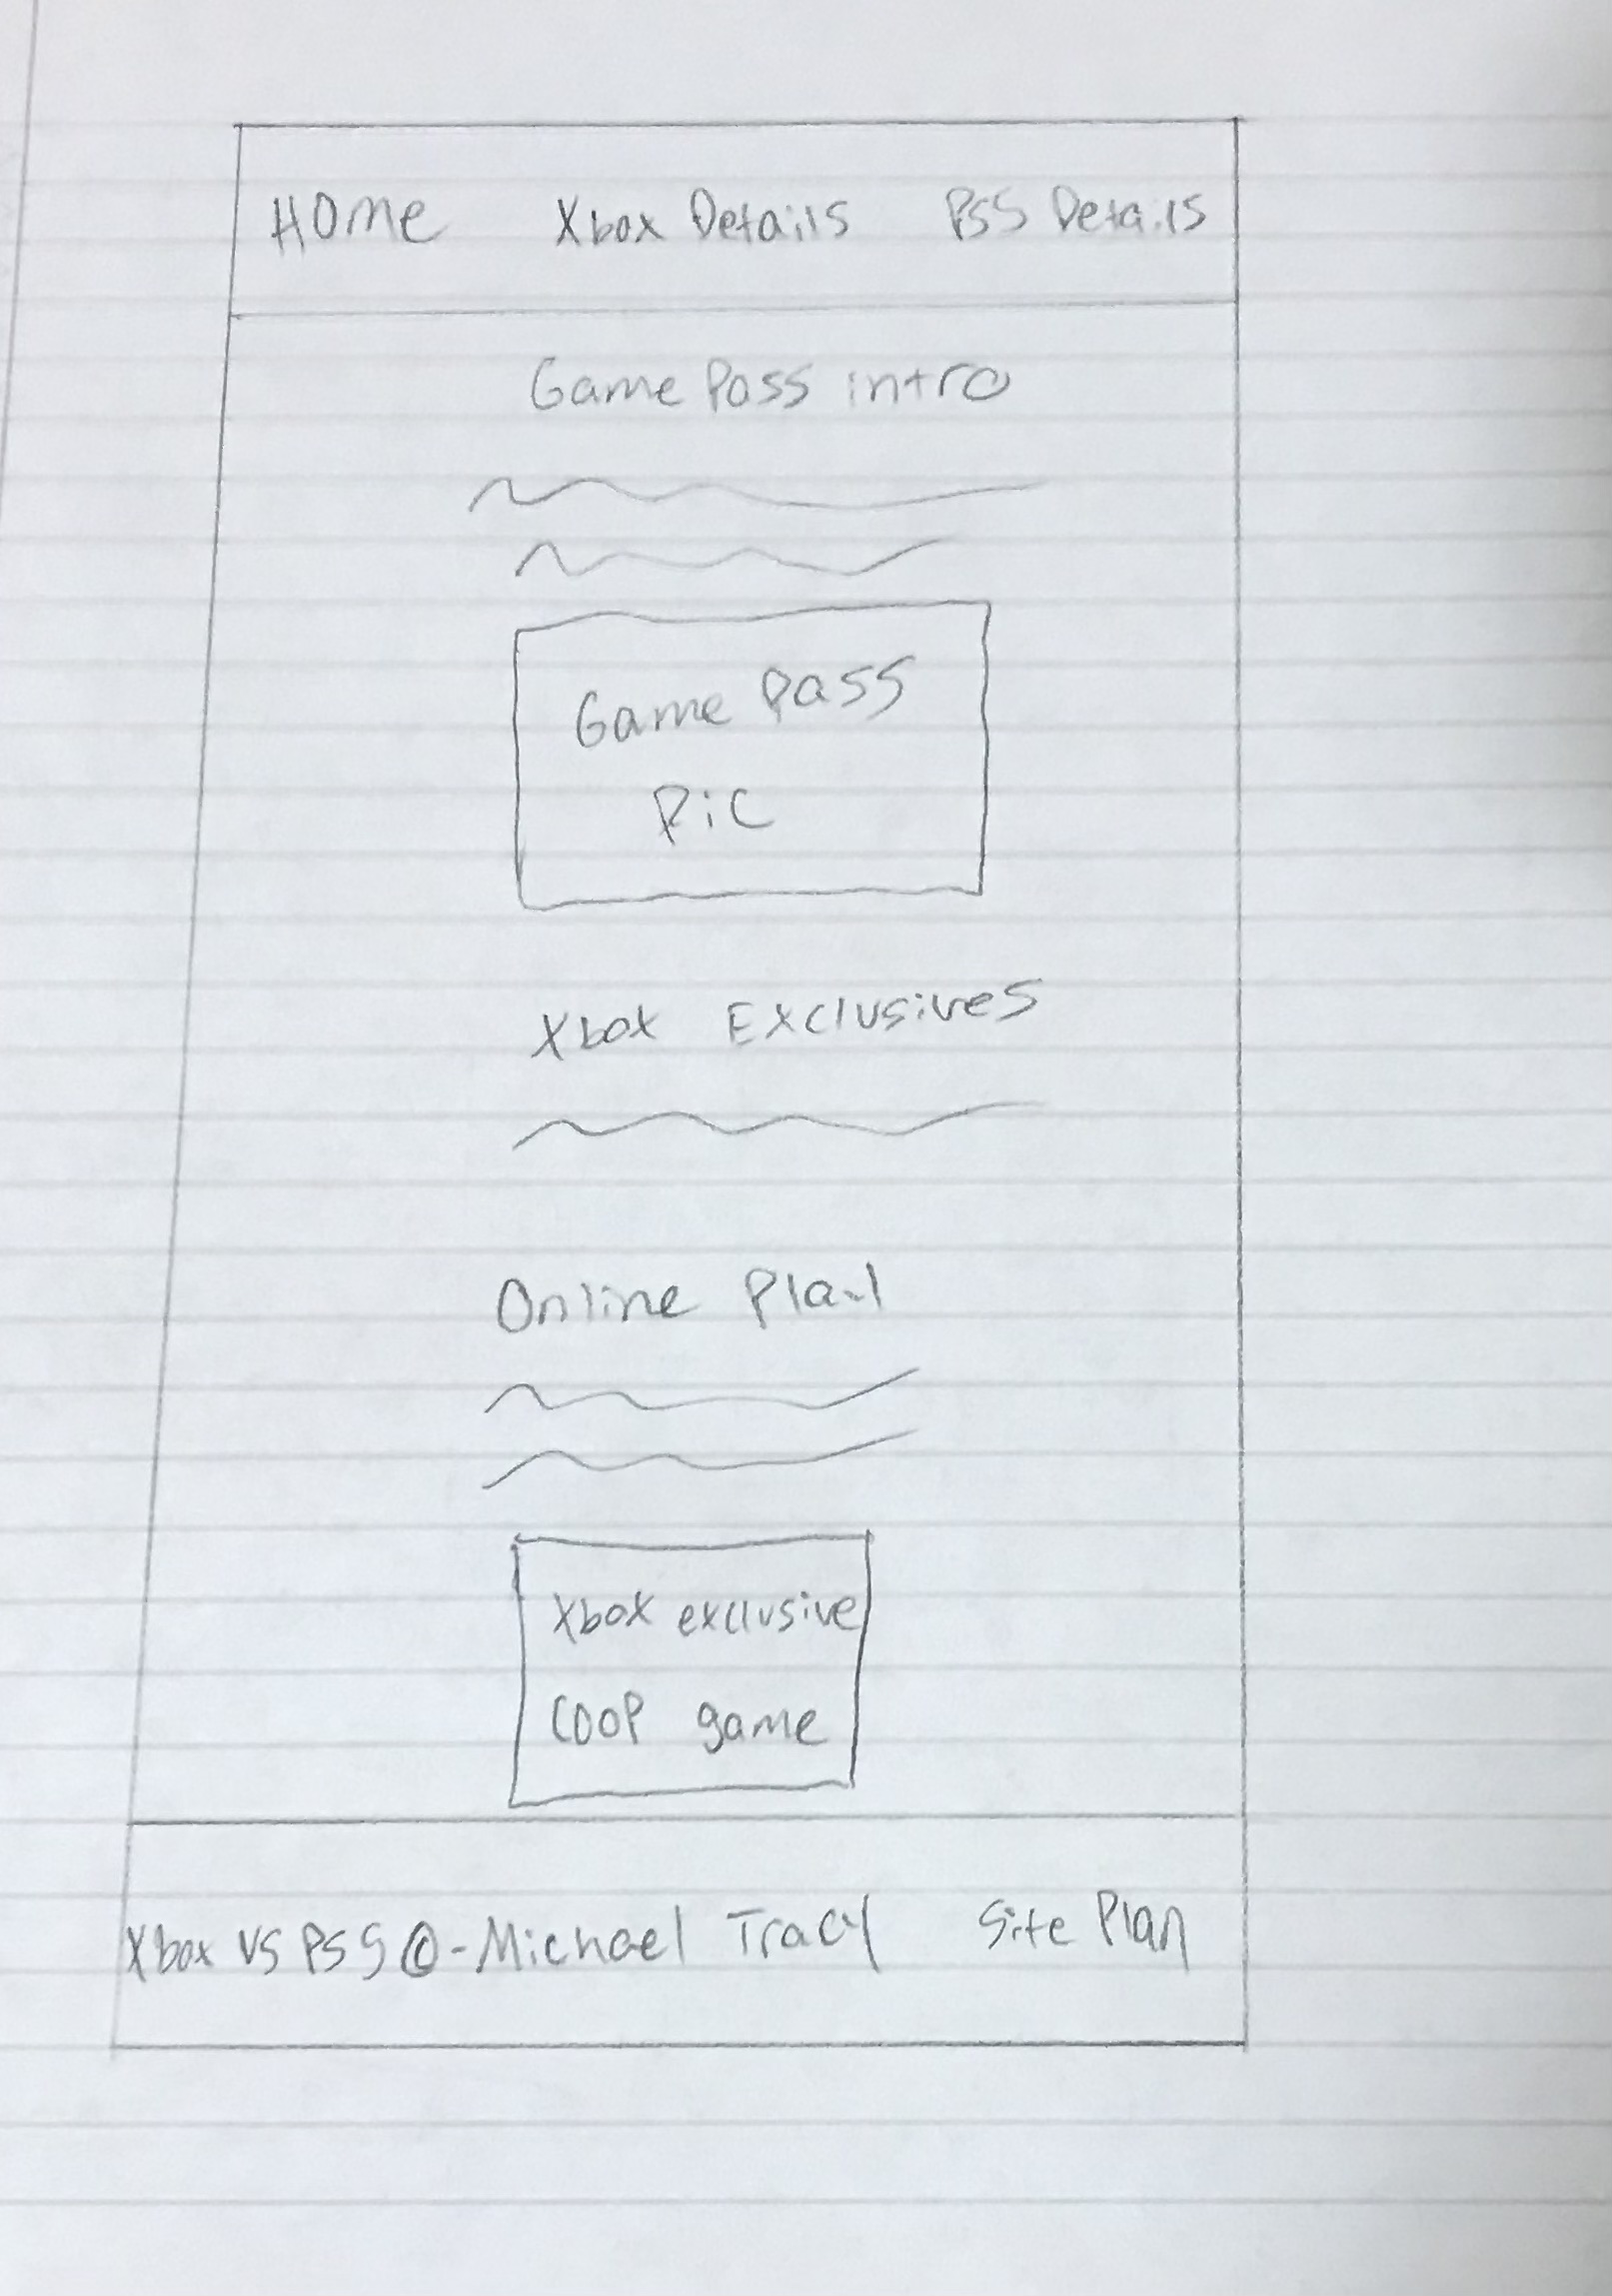 Home Xbox Details PS5 Details
Game Pass intro
Game Pass
Pic
Xbox Exclusives
Online Play
Xbox exclusive
COOP game
Xbox VS PS5 ©-Michael Tracy Site Plan